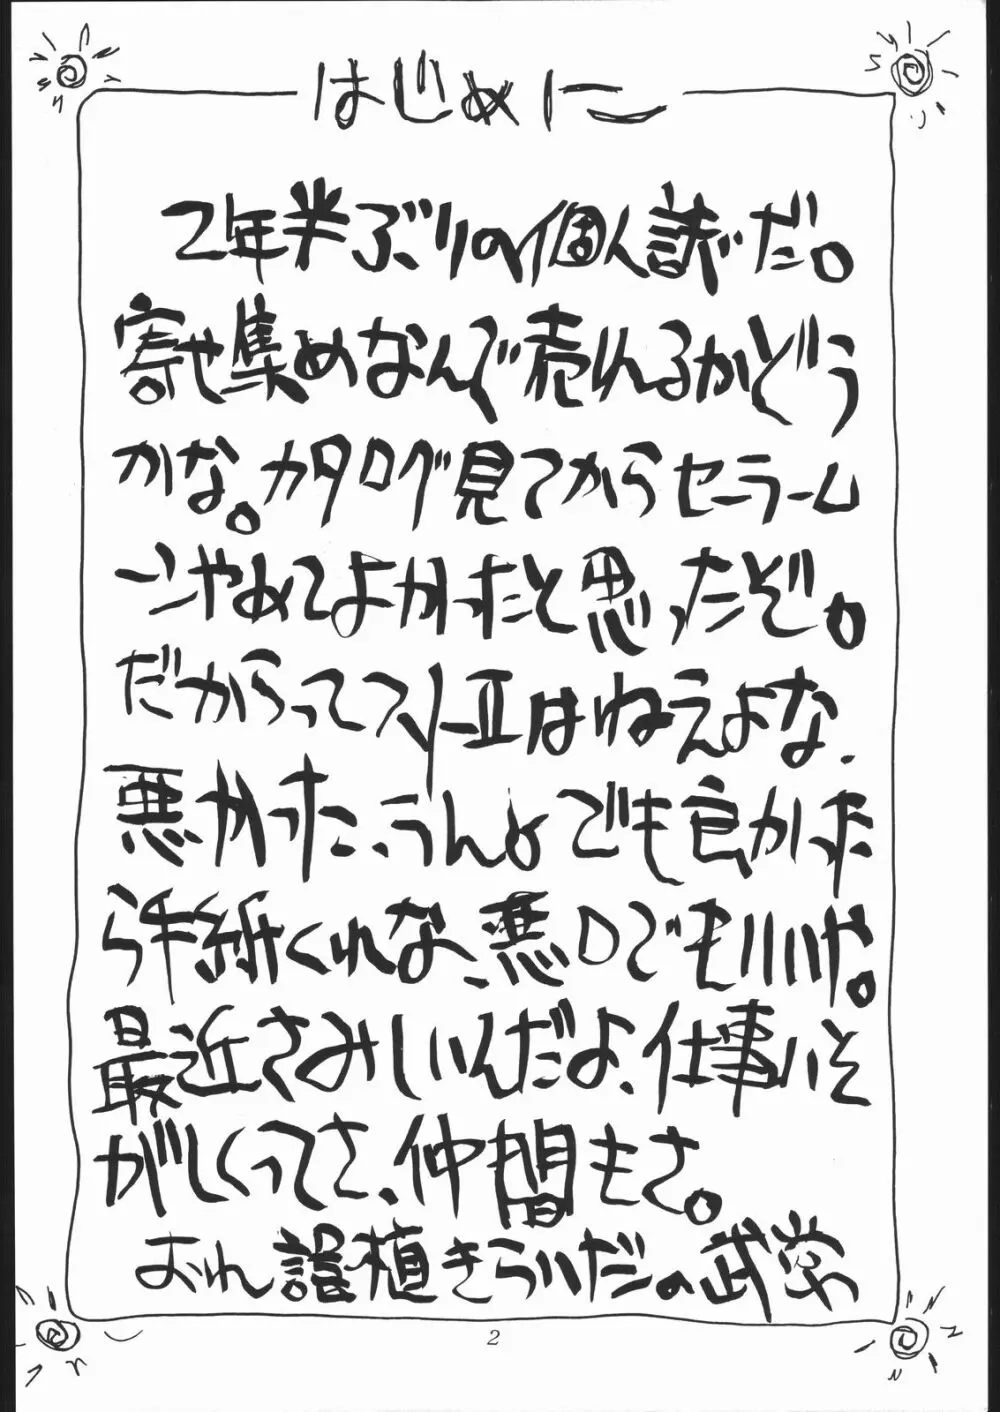 はじめに
2年半ぶりの個人誌だ。
寄せ集めなんで売れるかどう
かな。カタログ見てからセーラーム
ーンやめてよかったと思ったぞ。
だからってスリーエはねえよな、
悪かった、うんよでも良かった
ら手紙くれな、悪口でもいいや。
最近さみしいんだよ、仕事いそ
がしくってさ、仲間もさ。
おれ誤植きらいだの武学
2